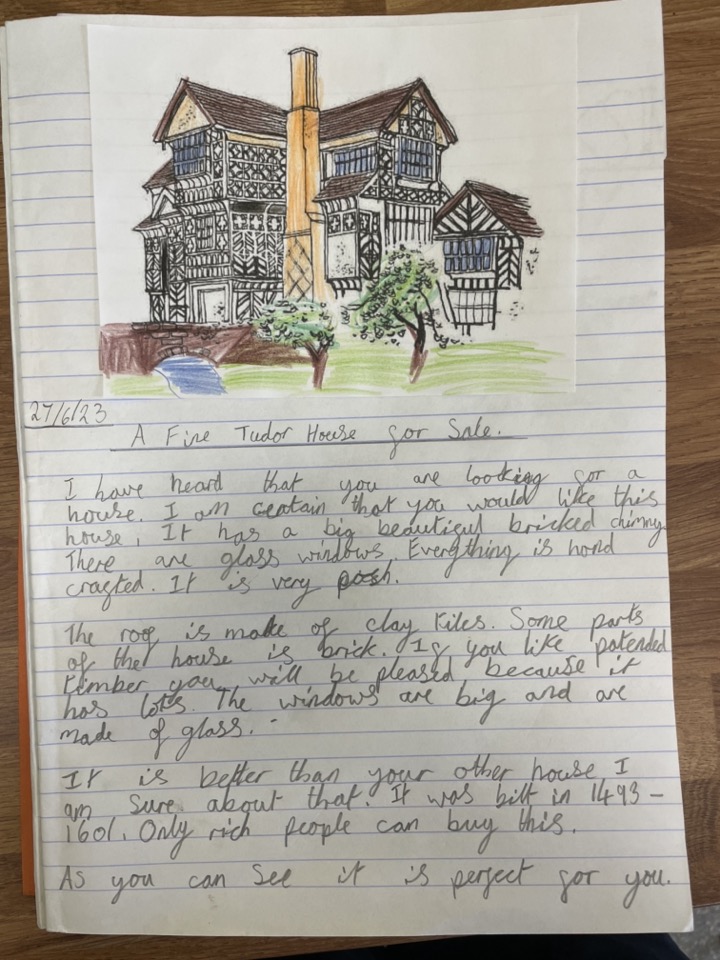 27/6/23
A Fine Tudor House for Sale.
I have heard that you are looking for a
house. I am ceatain that you would like this
house. It has a big beautiful bricked chimny.
There are glass windows. Everything is hand
crafted. It is very posh.
The roof is make of clay tiles. Some parts
of the house is brick. If you like patended
timber you will be pleased because it
has lots. The windows are big and are
made of glass.
It is better than your other house I
am sure about that. It was bilt in 1493 -
1601. Only rich people can buy this.
As you can see it is perfect for you.